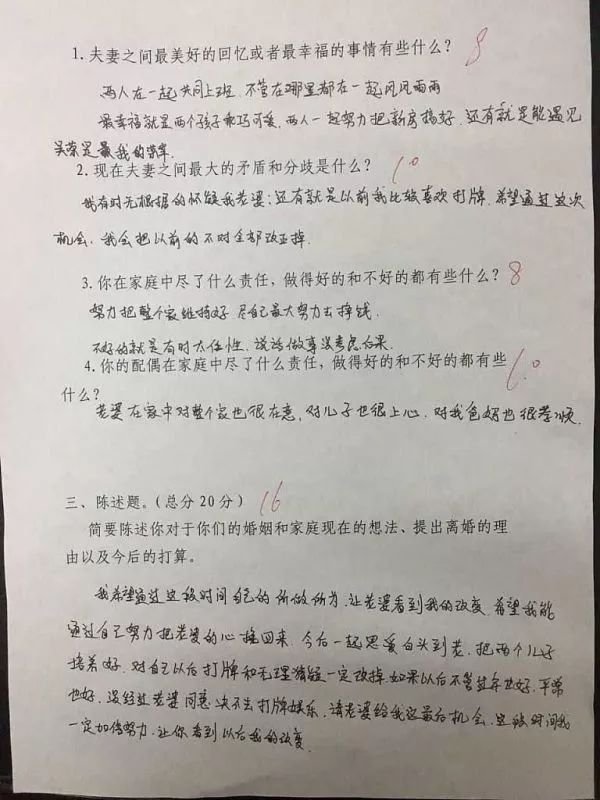 1. 夫妻之间最美好的回忆或者最幸福的事情有些什么? 8
两人在一起共同上班.不管在哪里都在一起风风雨雨
最幸福就是两个孩子乖巧可爱,两人一起努力把新房搞好.还有就是能遇见
吴荣是最我的幸幸.
2. 现在夫妻之间最大的矛盾和分歧是什么? 10
我有时无根据的怀疑我老婆;还有就是以前我比较喜欢打牌.希望通过这次
机会.我会把以前的不对全部改正掉.
3. 你在家庭中尽了什么责任,做得好的和不好的都有些什么? 8
努力把整个家维持好 尽自己最大努力去挣钱.
不好的就是有时太任性.说话做事没考虑后果.
4. 你的配偶在家庭中尽了什么责任,做得好的和不好的都有些 10
什么?
老婆在家中对整个家也很在意,对儿子也很上心.对我爸妈也很孝顺.
三、陈述题。(总分20分) 16
简要陈述你对于你们的婚姻和家庭现在的想法、提出离婚的理
由以及今后的打算。
我希望通过这段时间自己的所做所为.让老婆看到我的改变.希望我能
通过自己努力把老婆的心挽回来.今后一起恩爱白头到老.把两个儿子
培养好.对自己以后打牌和无理猜疑一定改掉.如果以后不管过年也好.平常
也好,没经过老婆同意 决不去打牌娱乐.请老婆给我这最后机会.这段时间我
一定加倍努力.让你看到以后我的改变.